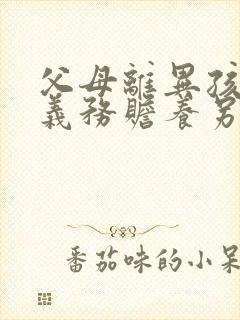 父母離異孩
義務贍養另
番茄味的小呆